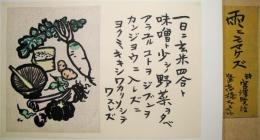 一日ニ玄米四合ト
味噌ト少シノ野菜ヲタベ
アラユルコトヲジブンヲ
カンジョウニ入レズニ
ヨクミキキシワカリソシテ
ワスレズ
雨ニモマケズ
宮澤賢治